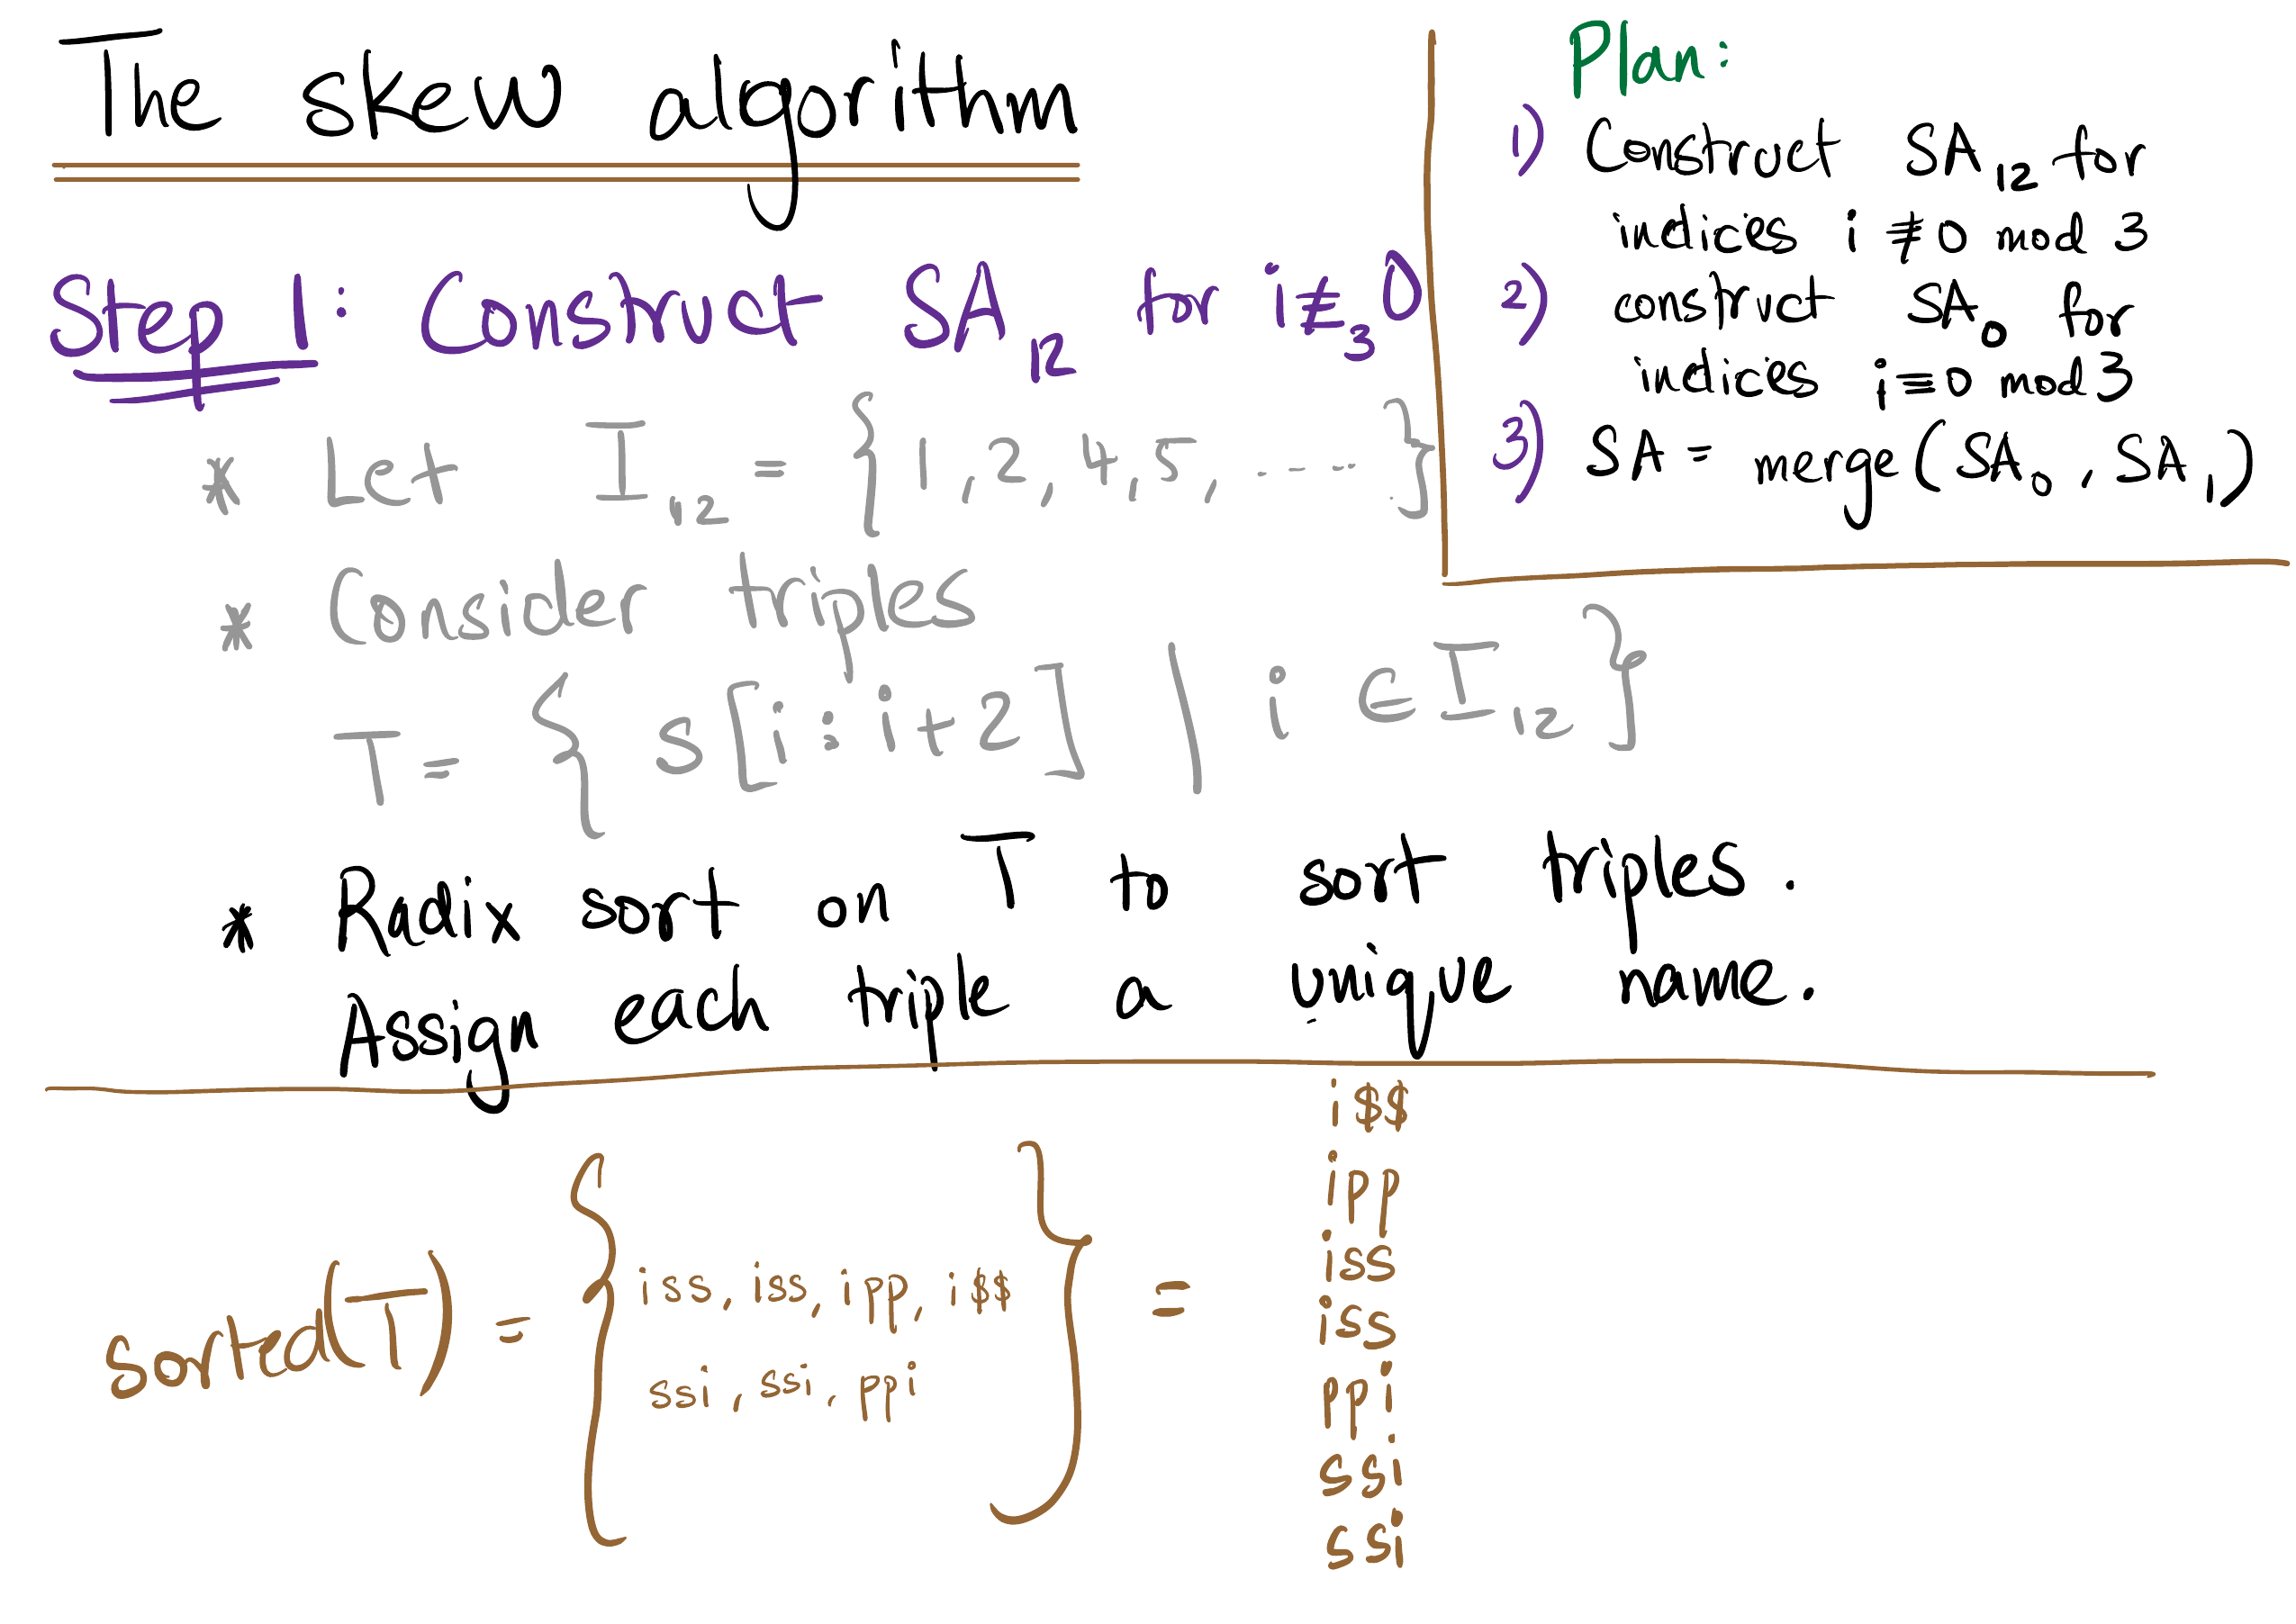 The skew algorithm
Plan:
1) Construct SA₁₂ for
indices i ≢ 0 mod 3
2) construct SA₀ for
indices i≡0 mod 3
3) SA = merge(SA₀, SA₁)
Step 1: Construct SA₁₂ for i≢₃ 0
* Let I₁₂ = {1,2,4,5, .....}
* Consider triples
T= { s[i:i+2] | i ∈ I₁₂ }
* Radix sort on T to sort triples.
Assign each triple a unique name.
sorted(T) = { iss, iss, ipp, i$$
ssi, ssi, ppi } =
i$$
ipp
iss
iss
ppi
ssi
ssi